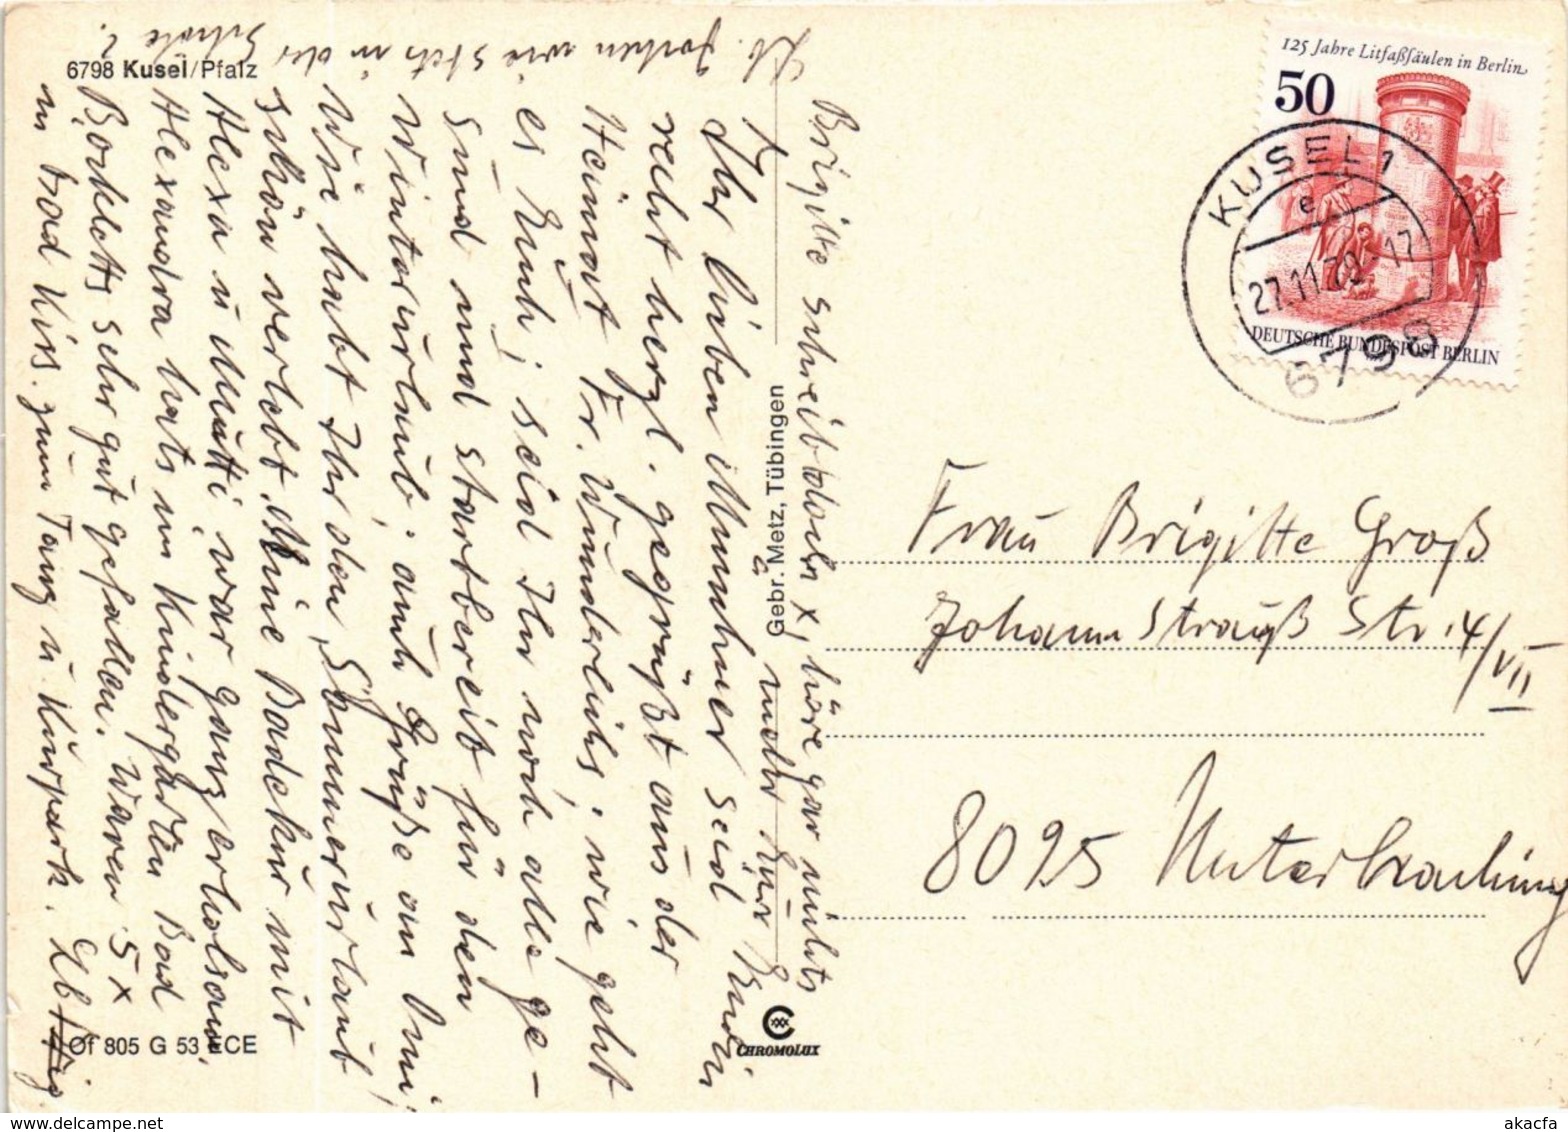 6798 Kusel/Pfalz
125 Jahre Litfaßsäulen in Berlin
50
DEUTSCHE BUNDESPOST BERLIN
KUSEL 1
e
27.11.79-17
6798
Ihr lieben Münchner seid
recht herzl. gegrüßt aus der
Heimat Fr. Wunderlichs, wie geht
es Euch, seid Ihr noch alle ge-
sund und startbereit für den
Winterurlaub, auch Grüße an Omi,
Wie habt Ihr den Sommerurlaub
schön verlebt. Meine Badekur mit
Alexa u Mutti, war ganz erholsam,
Alexandra hats im Kindergarten Bad
Bocklets sehr gut gefallen. Waren 5x
in Bad Kiss. zum Tanz u. Kurpark.
Brigitte schreib doch x, höre gar nichts
mehr Eur Erwin
wie stets in der Schule?
Gebr. Metz, Tübingen
CHROMOLUX
Of 805 G 53 ECE
Frau Brigitte Groß
Johann Strauß Str. 4/VII
8025 Unterhaching
www.delcampe.net
akacfa